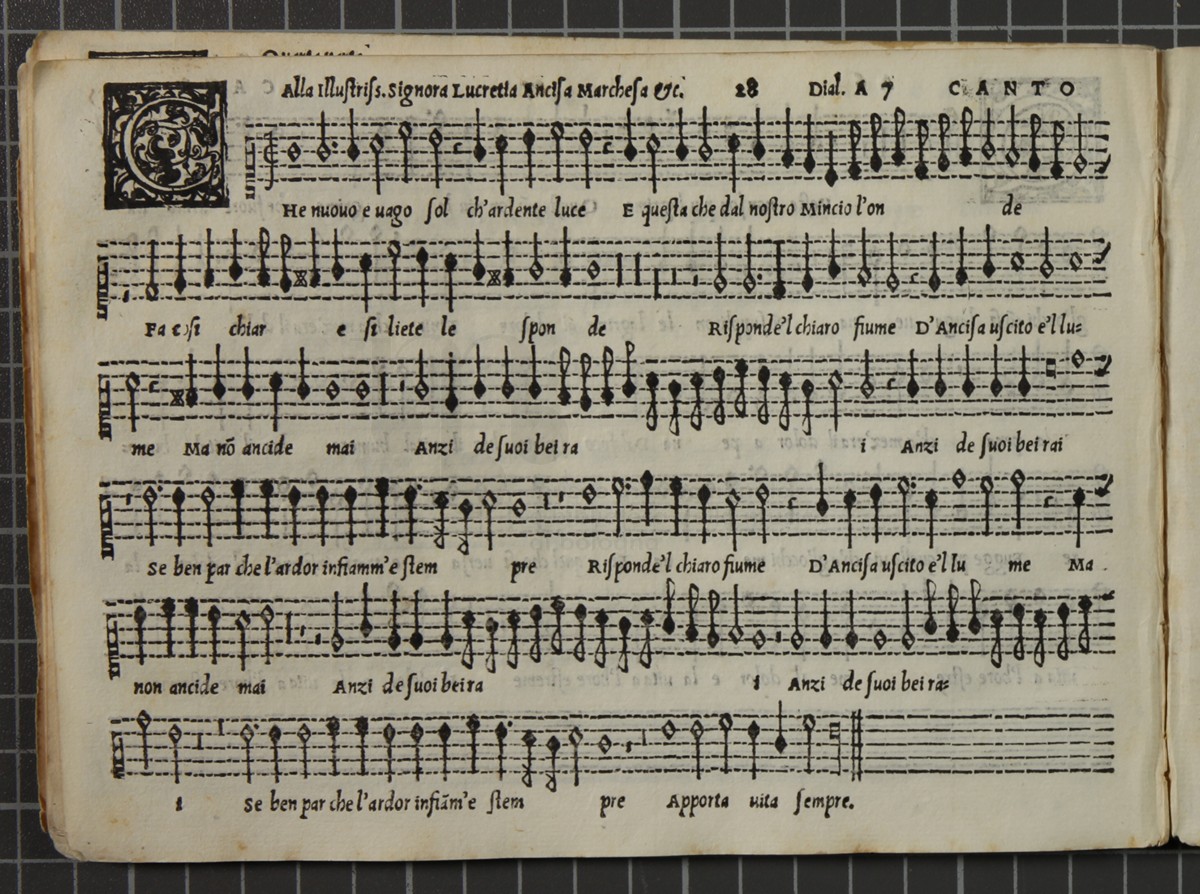 Alla Illustriss. Signora Lucretia Ancisa Marchesa &c. 28 Dial. A 7 CANTO
C
He nuouo e uago sol ch'ardente luce E questa che dal nostro Mincio l'on de
Fa cosi chiar e si liete le spon de Risponde'l chiaro fiume D'Ancisa uscito e'l lu=
me Ma nõ ancide mai Anzi de suoi bei ra i Anzi de suoi bei rai
Se ben par che l'ardor infiamm'e stem pre Risponde'l chiaro fiume D'Ancisa uscito e'l lu me Ma
non ancide mai Anzi de suoi bei ra i Anzi de suoi bei ra=
i Se ben par che l'ardor infiãm'e stem pre Apporta uita sempre.